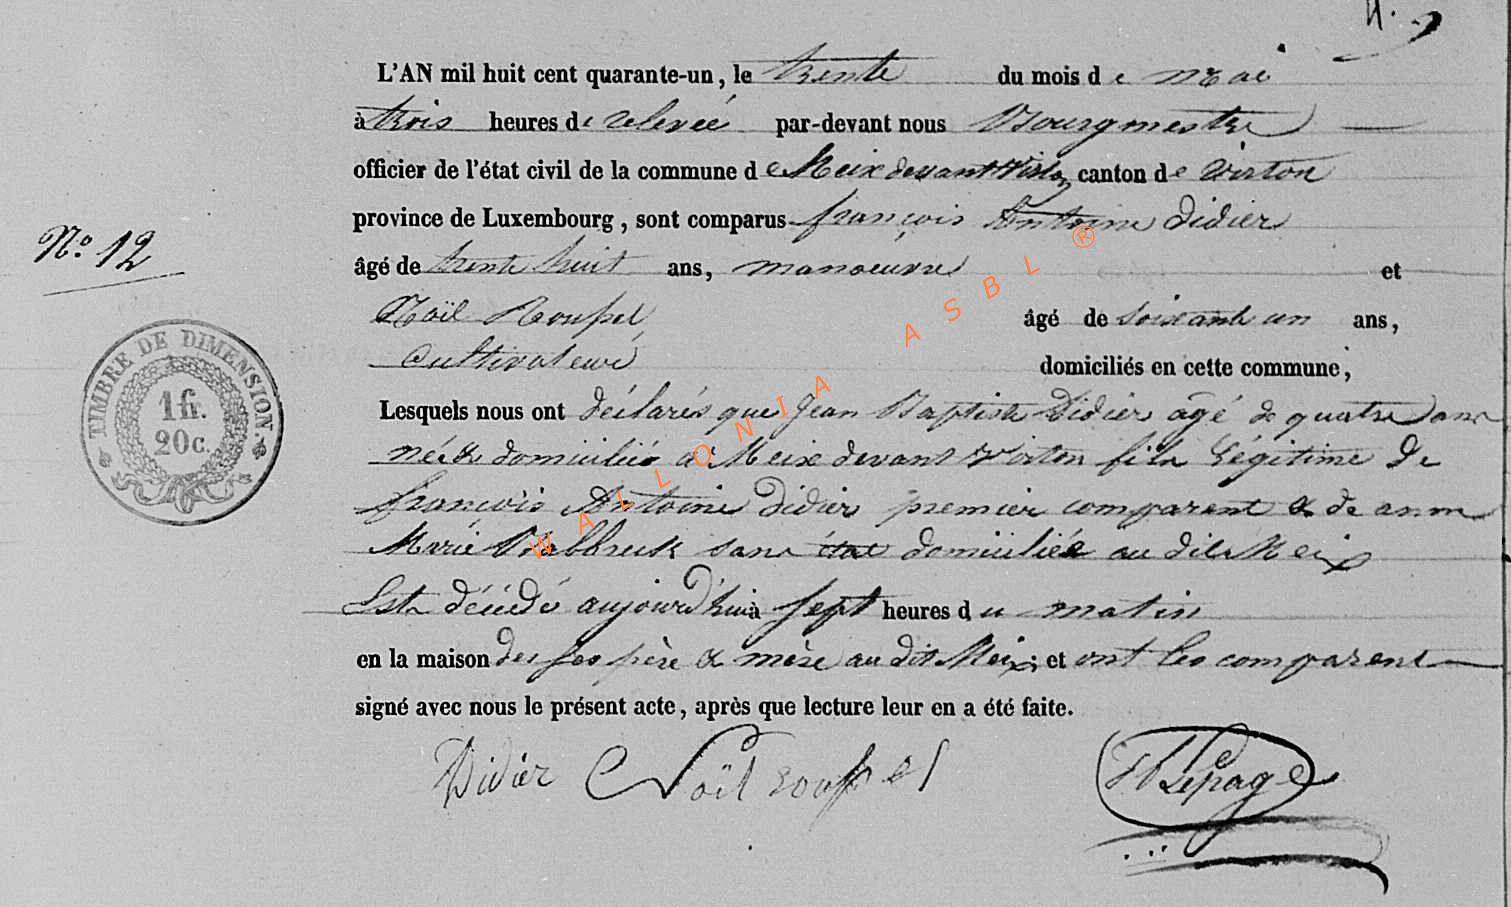 L'AN mil huit cent quarante-un, le trente du mois de Mai
à trois heures de relevée par-devant nous Bourgmestre
officier de l'état civil de la commune de Meix devant Virton canton de Virton
province de Luxembourg, sont comparus françois Antoine Didier
N.o 12
âgé de trente huit ans, manoeuvre et
Noïl Roupel âgé de soixante un ans,
Cultivateur domiciliés en cette commune,
TIMBRE DE DIMENSION
1 fr.
20 c.
Lesquels nous ont déclarés que Jean Baptiste Didier âgé de quatre ans
né & domicilié à Meix devant Virton fils légitime de
françois Antoine Didier premier comparant & de anne
Marie sans état domiciliée au dit Meix
Est décédé aujourd'hui à sept heures du matin
en la maison des ses père & mère au dit Meix; et ont les comparent
signé avec nous le présent acte, après que lecture leur en a été faite.
Didier Noïl roupel Lepage
WALLONIA ASBL ®